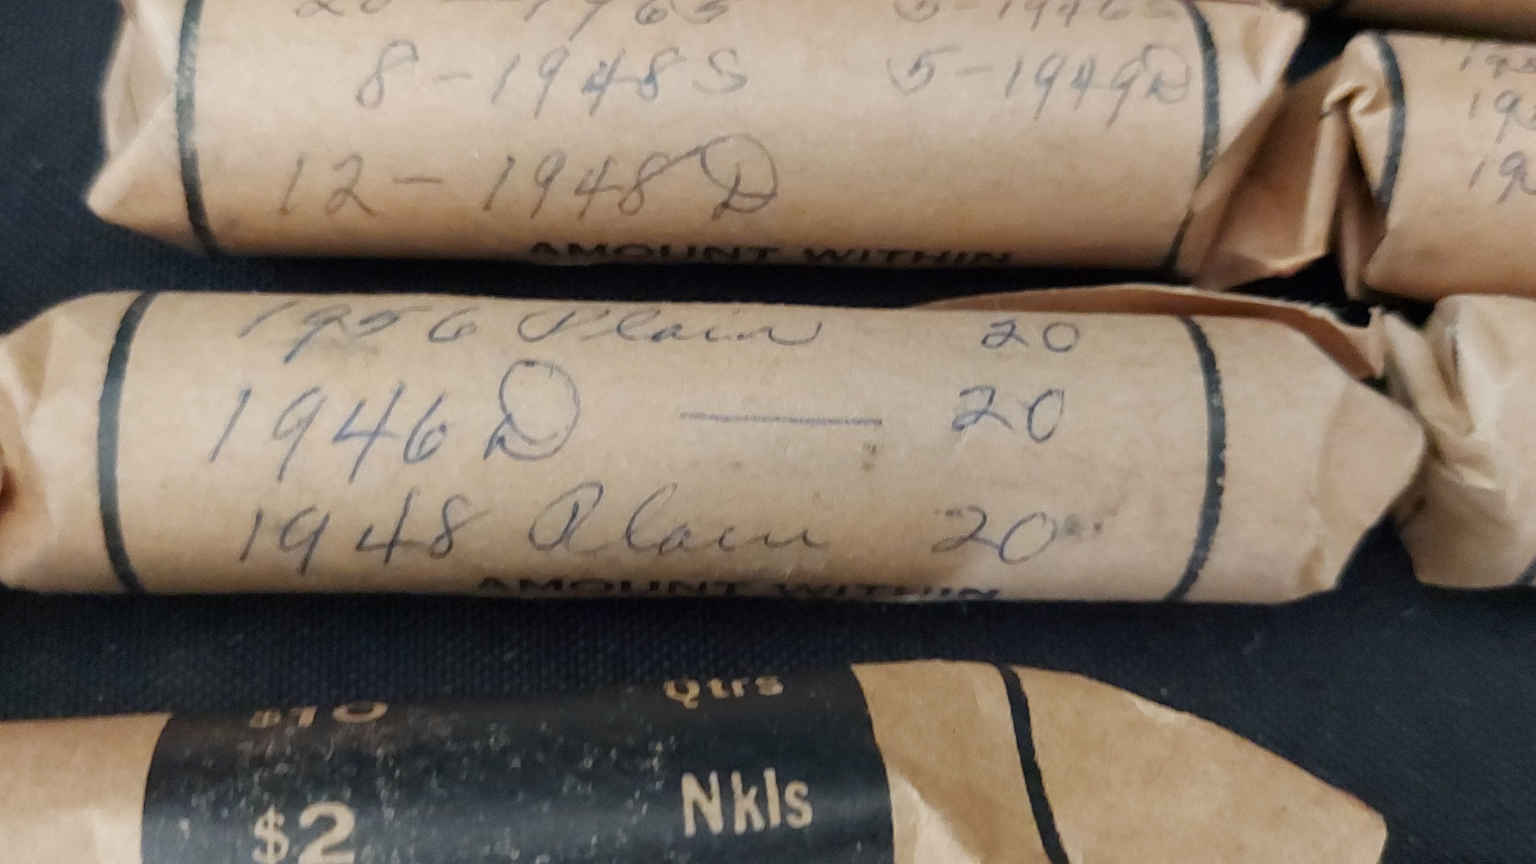 8 - 1948 S 5 - 1949 D
12 - 1948 D
AMOUNT WITHIN
1956 Plain 20
1946 D — 20
1948 Plain 20
AMOUNT WITHIN
$10 Qtrs
$2 Nkls